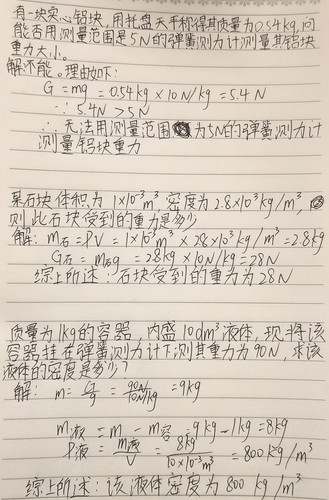 有一块实心铝块,用托盘天平称得其质量为0.54kg,问
能否用测量范围是5N的弹簧测力计测量其铝块
重力大小。
解:不能。理由如下:
G=mg=0.54kg×10N/kg=5.4N
∵5.4N>5N
∴无法用测量范围为5N的弹簧测力计
测量铝块重力
某石块体积为1×10⁻³m³,密度为2.8×10³kg/m³,
则此石块受到的重力是多少
解:m石=ρV=1×10⁻³m³×2.8×10³kg/m³=2.8kg
G石=m石g=2.8kg×10N/kg=28N
综上所述:石块受到的重力为28N
质量为1kg的容器,内盛10dm³液体,现将该
容器挂在弹簧测力计下测其重力为90N,求该
液体的密度是多少?
解:m=G/g=90N/10N/kg=9kg
m液=m-m容=9kg-1kg=8kg
ρ液=m液/V=8kg/10×10⁻³m³=800kg/m³
综上所述:该液体密度为800kg/m³